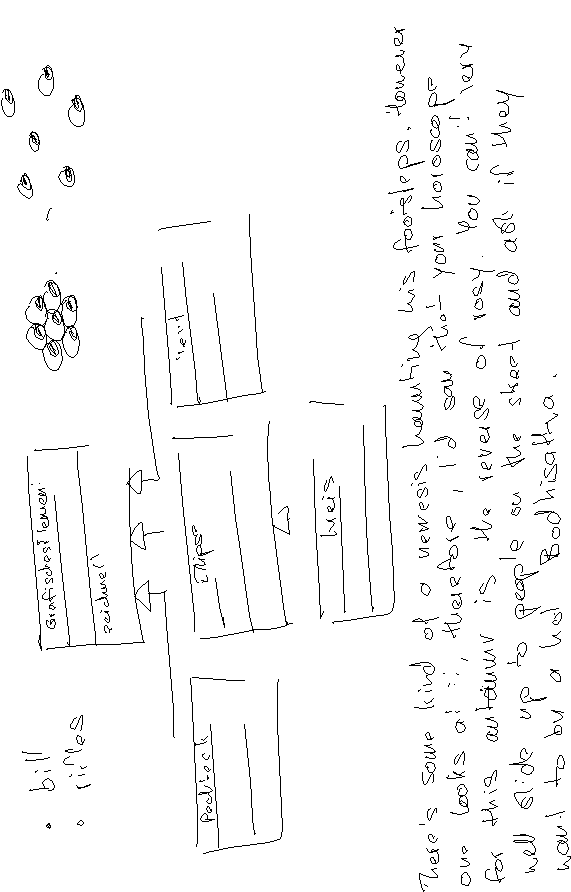 • bill
• rifles
Grafisches Element
zeichnen
Rechteck
Ellipse
Text
Kreis
There's some kind of a nemesis haunting his footsteps. However
one looks at it, therefore, I'd say that your horoscope
for this autumn is the reverse of rosy. You can't very
well slide up to people on the street and ask if they
want to buy a hot Bodhisattva.